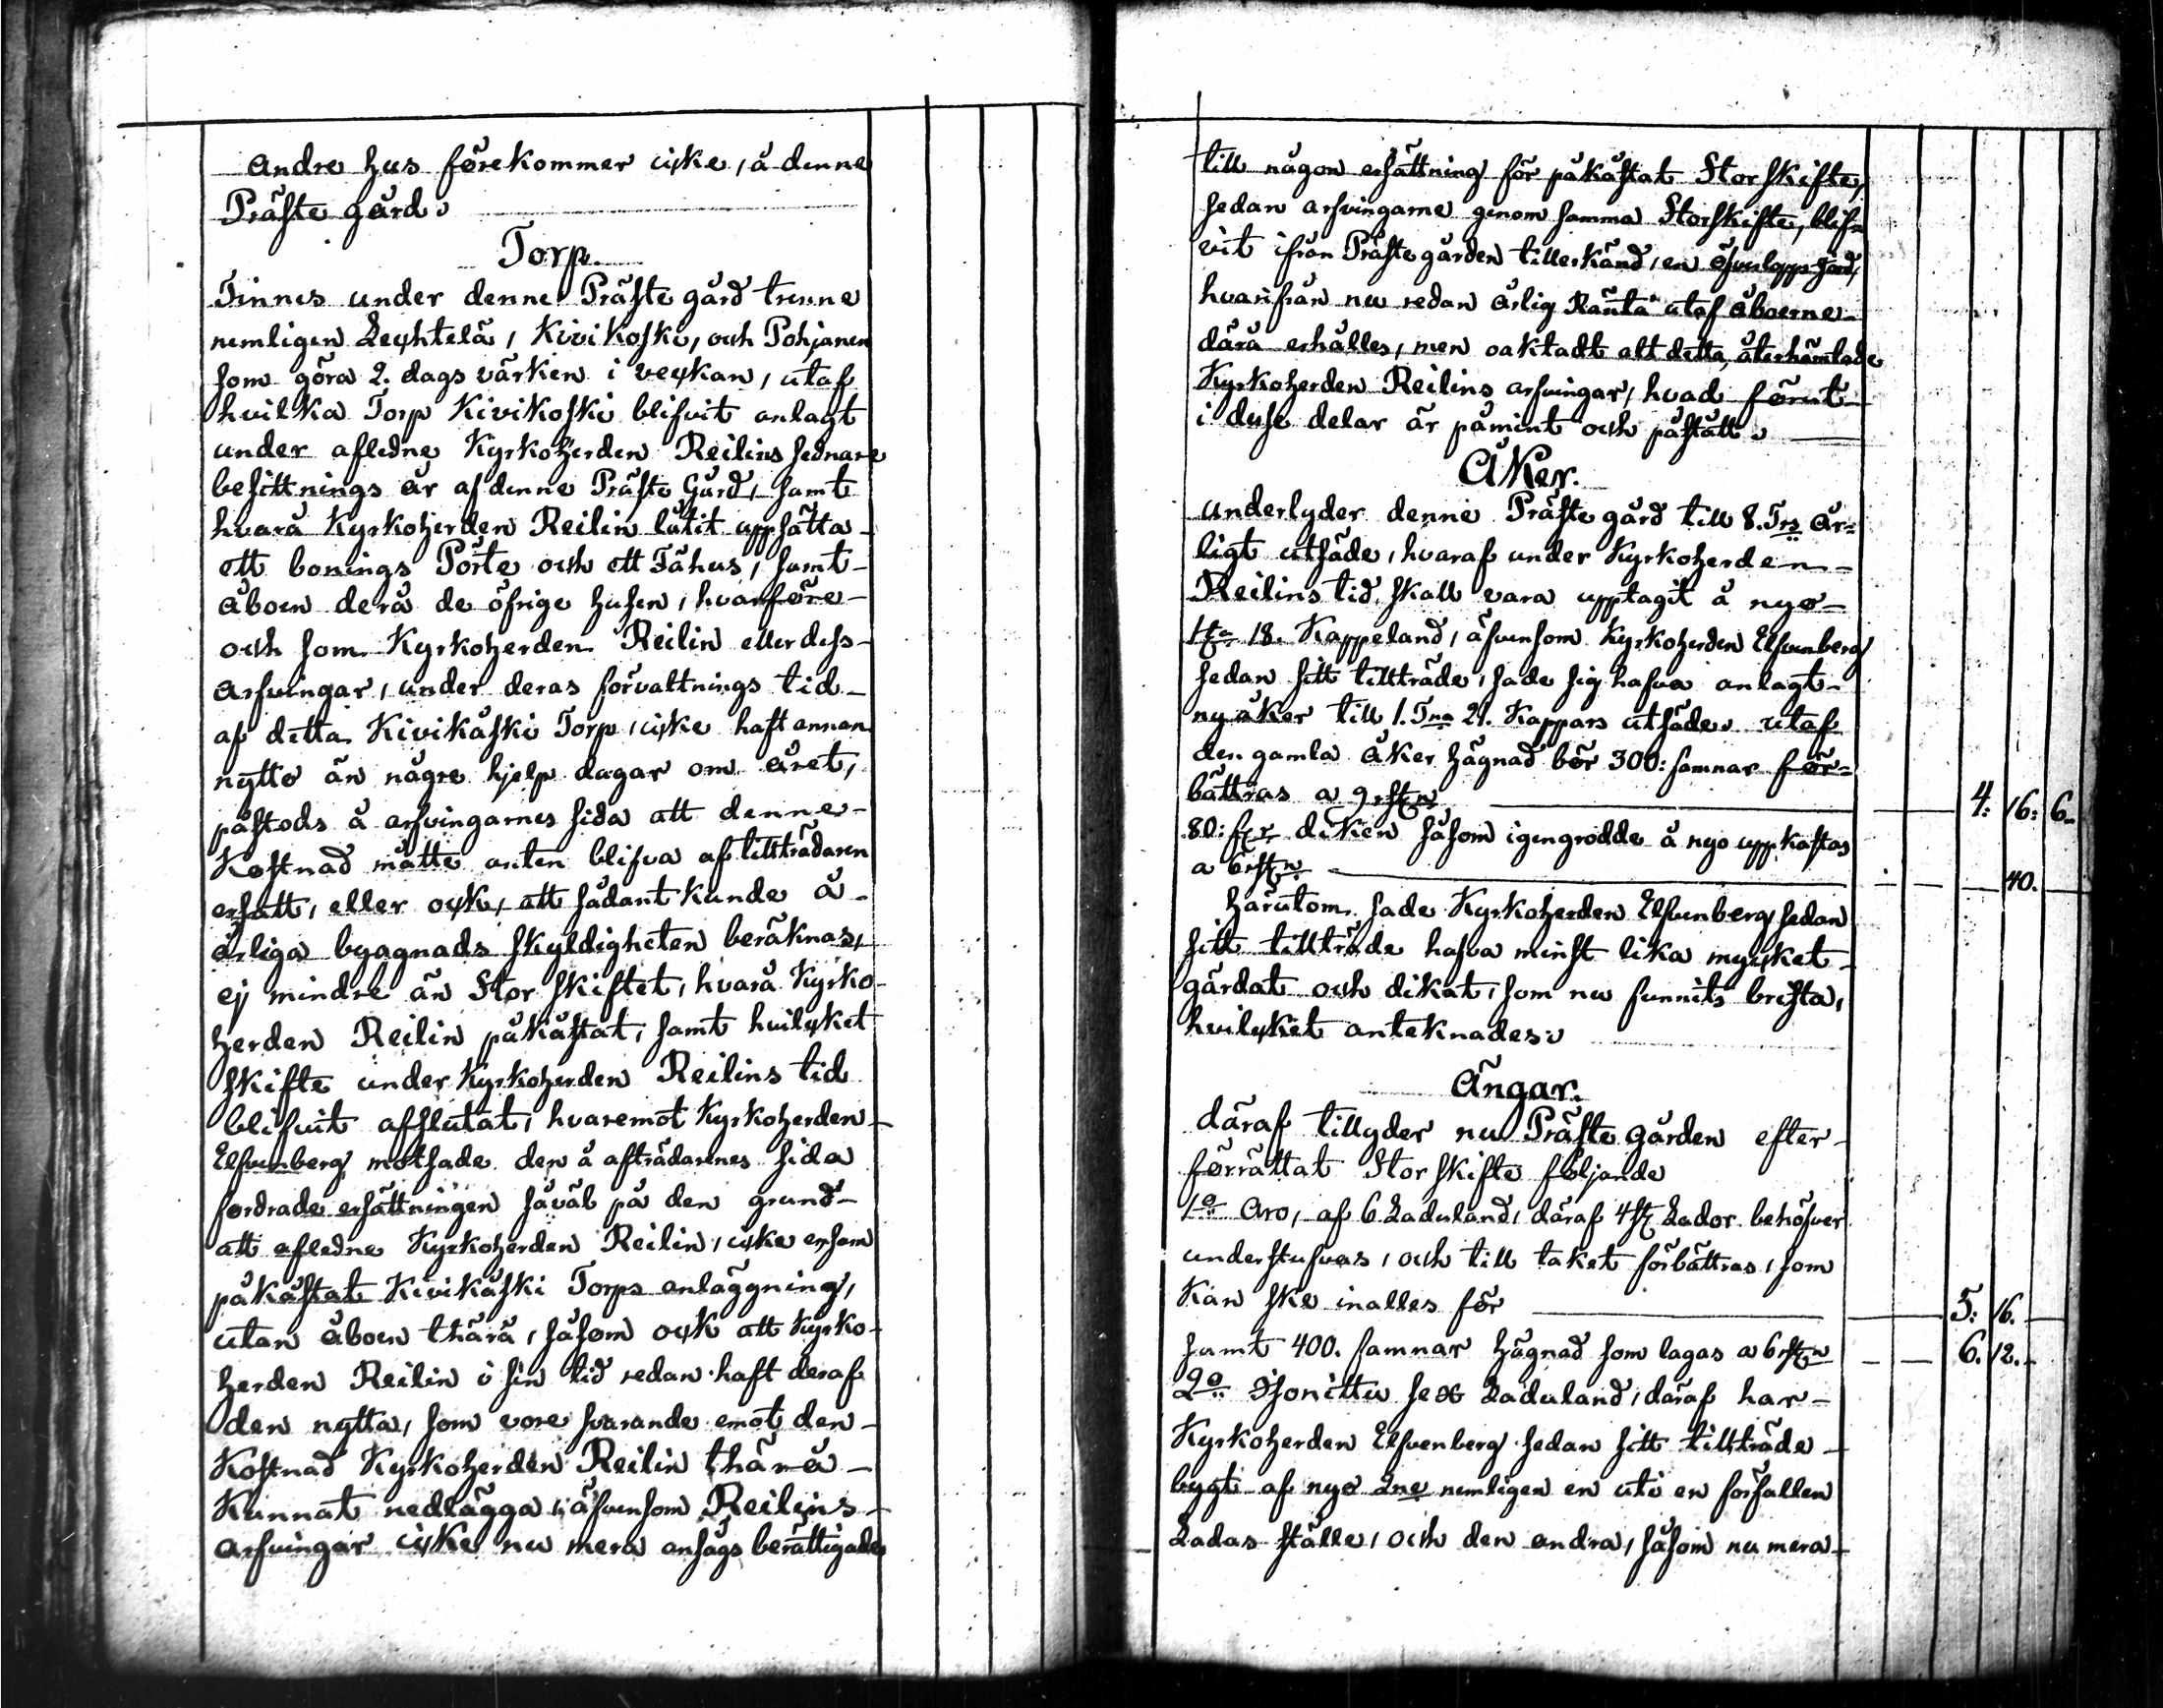 Andre hus förekommer icke, å denne
Präste gård.
Torp.
Finnes under denne Präste gård trenne
nemligen Leyhtelä, Kivikoski, och Pohjanen
som göra 2. dags värken i veckan, utaf
hvilka Torp Kivikoski blifvit anlagt
under afledne Kyrkoherden Reilins sednare
besittnings år af denne Präste Gård, samt
hvarå Kyrkoherden Reilin låtit uppsätta
ett bonings Pörte och ett Fähus, samt
Åboen derå de öfrige husen, hvarföre
och som Kyrkoherden Reilin eller dess
Arfvingar, under deras förvaltnings tid
af detta Kivikåski Torp, icke haft annan
nytto än några hjelp dagar om året,
påstods å arfvingarnes sida att denne
Kostnad måtte anten blifva af tillträdaren
ersatt, eller ock, att sådant kunde å
årliga byggnads skyldigheten beräknas,
ej mindre än Stor skiftet, hvarå Kyrko
herden Reilin påkåstat, samt hvilcket
skifte under Kyrkoherden Reilins tid
blifvit afslutat, hvaremot Kyrkoherden
Elfvenberg motsade den å afträdarenes sida
fordrade ersättningen såväl på den grund
att afledne Kyrkoherden Reilin, icke ensam
påkåstat Kivikåski Torps anläggning,
utan åboen thärå, såsom ock att Kyrko
herden Reilin i sin tid redan haft deraf
den nytta, som vore svarande emot den
Kostnad Kyrkoherden Reilin thärå
Kunnat nedlägga, äfvensom Reilins
arfvingar icke nu mera ansågs berättigade
till någon ersättning för påkåstat Storskifte,
sedan arfvingarne genom samma Storskifte, blif=
vit ifrån Prästegården tillerkänd, en öfverlopps Jord,
hvarifrån nu redan årlig Ränta utaf Åboerne
därå erhålles, men oaktadt alt detta, återhämtade
Kyrkoherden Reilins arfvingar, hvad förut
i desse delar är påmint och påstått.
Åker.
underlyder denne Präste gård till 8. Trs År=
ligt utsäde, hvaraf under Kyrkoherden
Reilins tid skall vara upptagit å nyo
18. Kappeland, äfvensom Kyrkoherden Elfvenberg
sedan sitt tillträde, sade sig hafva anlagt
ny åker till 1. Tna 21. Kappars utsäde. utaf
den gamla åker hägnad bör 300: famnar för=
bättras a 9 rstn 4. 16: 6
80: fr diken såsom igengrodde å nyo uppkastas
a 6 rstn 40.
härutom sade Kyrkoherden Elfvenberg sedan
sitt tillträde hafva minst lika mycket
gärdat och dikat, som nu funnits brista,
hvilcket anteknades.
Ängar.
däraf tillyder nu Präste gården efter
förrättat Stor skifte följande
1o Aro, af 6 Laduland, däraf 4 st Lador behöfver
understufvas, och till taket förbättras, som
Kan ske inalles för 5. 16.
samt 400. famnar hägnad som lagas a 6 rstn 6. 12.
2o Isonittu sex Laduland, däraf har
Kyrkoherden Elfvenberg sedan sitt tillträde
bygt af nyo 2ne nemligen en uti en förfallen
Ladas ställe, och den andra, såsom nu mera